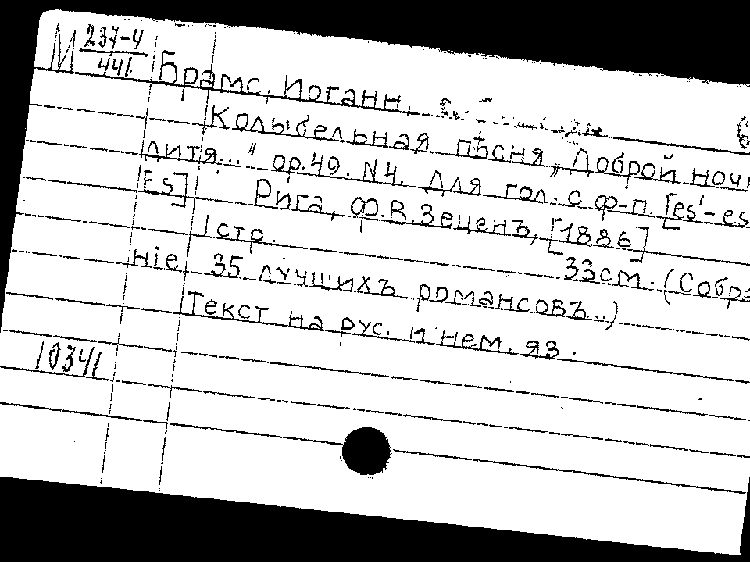 М 237-4
441
Брамс, Иоганн.
Колыбельная пѣсня „Доброй ночи
дитя..." ор.49. N4. Для гол. с ф-п. [es'-es
[Es] Рига, Ф.В. Зеценъ, [1886]
1 стр. 33см. (Собра
ніе 35 лучшихъ романсовъ..)
Текст на рус. и нем. яз.
10341